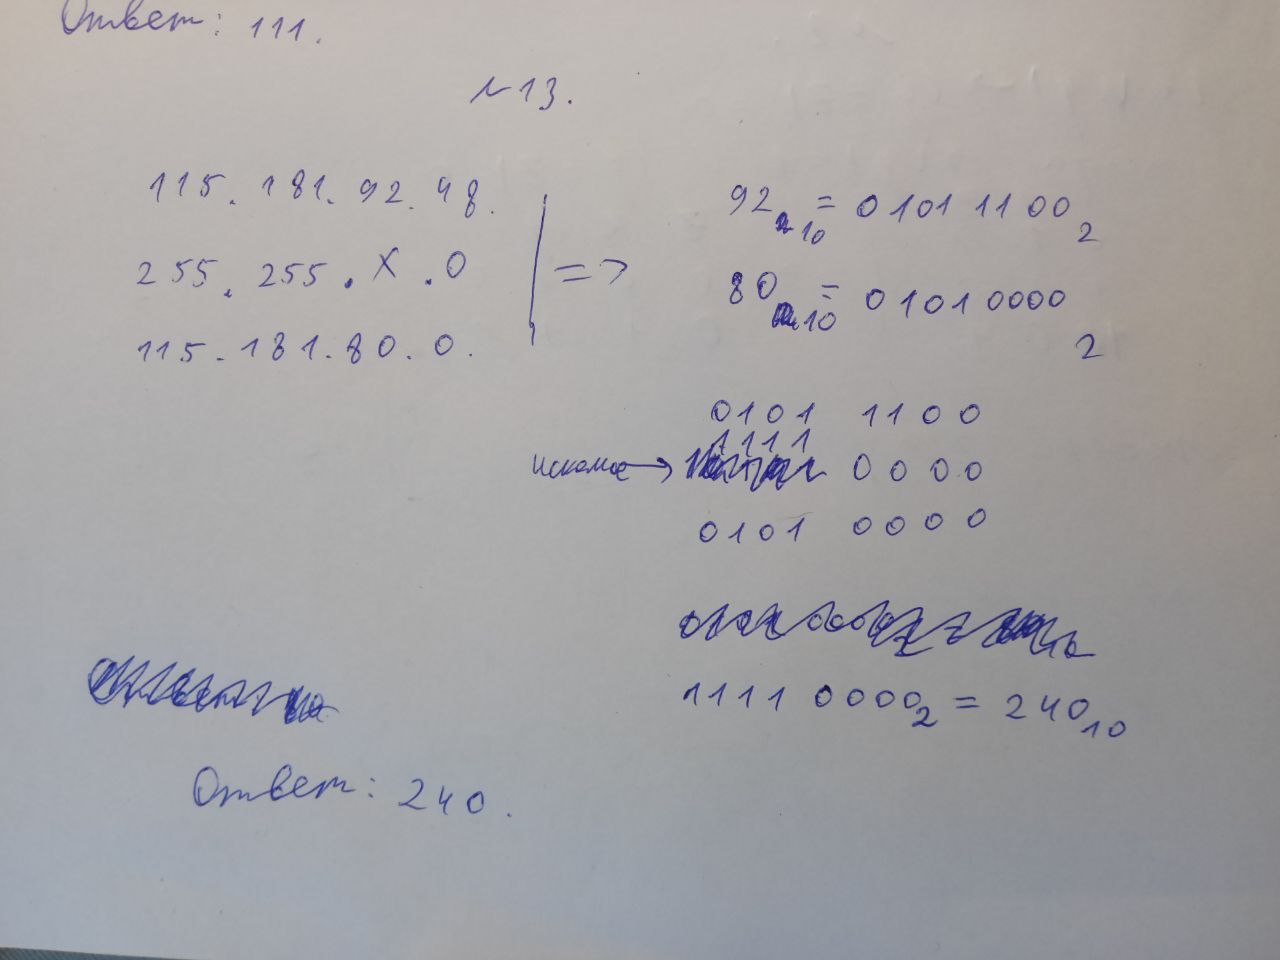 Ответ: 111.
№13.
115.181.92.48.
255.255.X.0
115.181.80.0.
=>
92₁₀ = 01011100₂
80₁₀ = 01010000₂
0101 1100
1111
искомое → 0000
0101 0000
1111 0000₂ = 240₁₀
Ответ: 240.